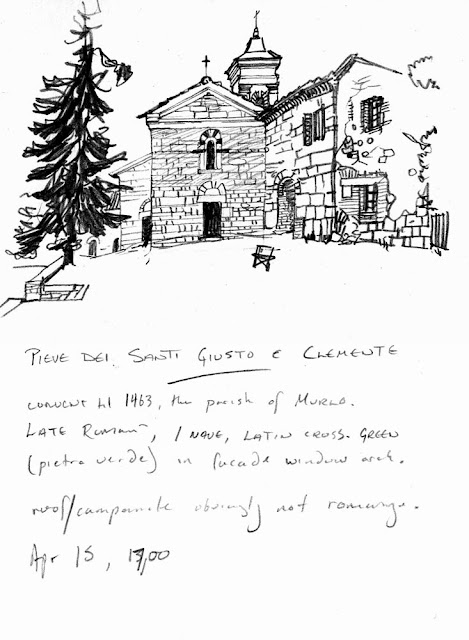 PIEVE DEI SANTI GIUSTO E CLEMENTE
CONVENT til 1463, the parish of MURLO.
LATE ROMAN, 1 NAVE, LATIN CROSS. GREEN
(pietra verde) in facade window arch.
roof/campanile obviously not romanesque.
Apr 15, 17,00